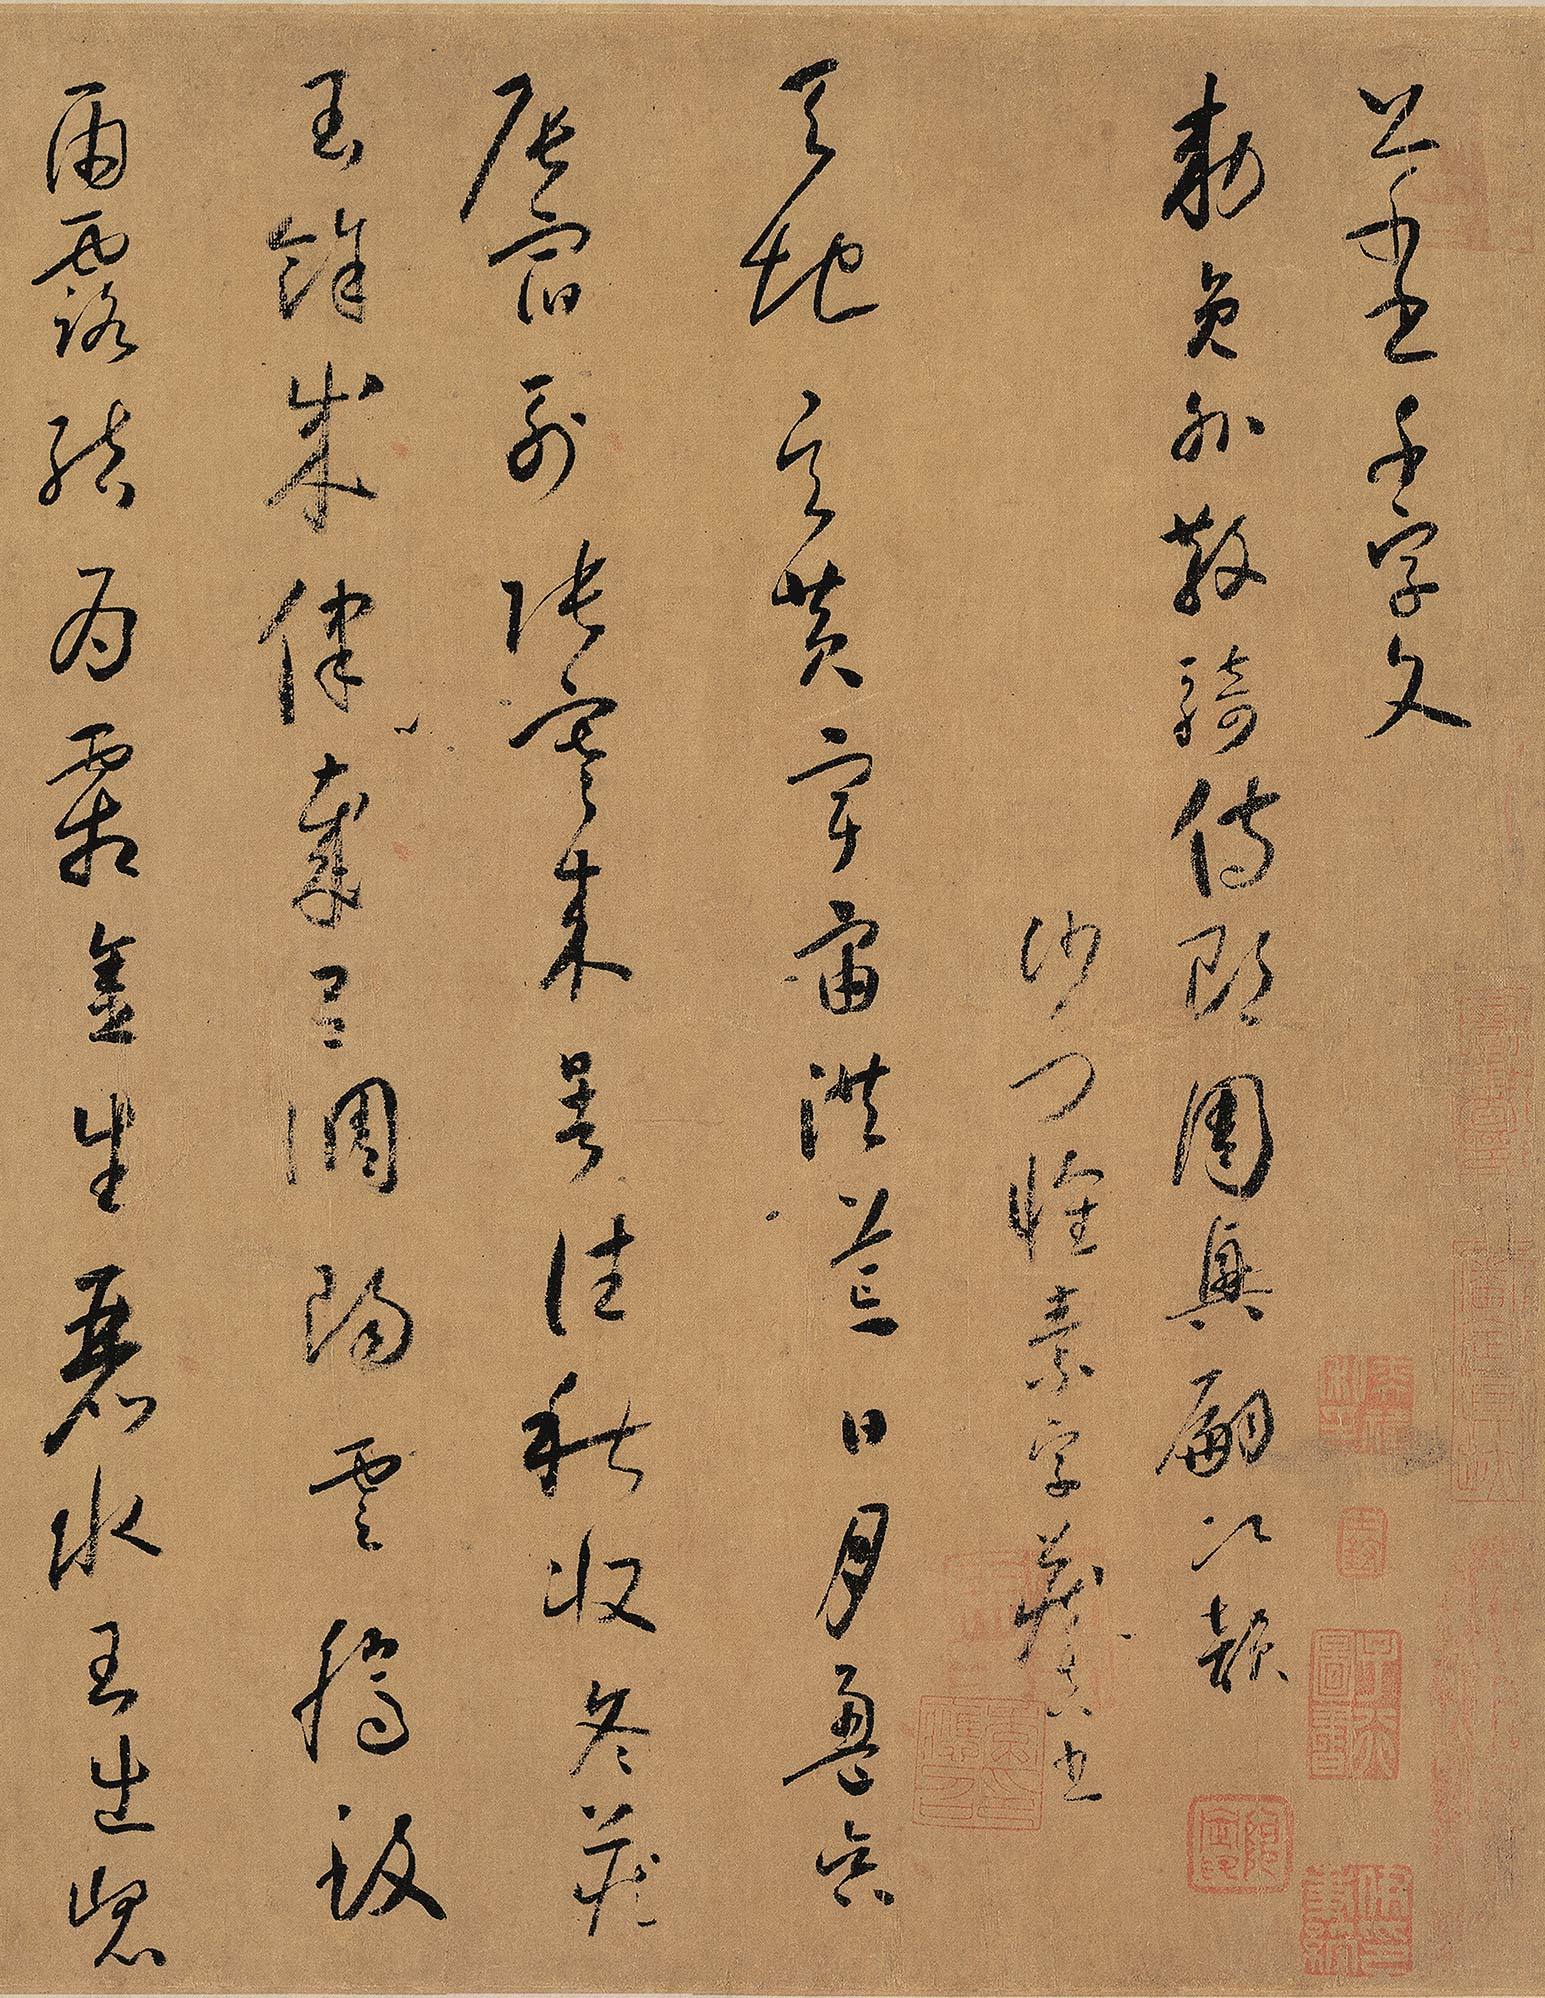 草書千字文
勅員外散騎侍郎周興嗣次韻
沙門懷素字藏真書
天地玄黃宇宙洪荒日月盈昃
辰宿列張寒來暑往秋收冬藏
閏餘成律歲呂調陽雲騰致
雨露結為霜金生麗水玉出崑